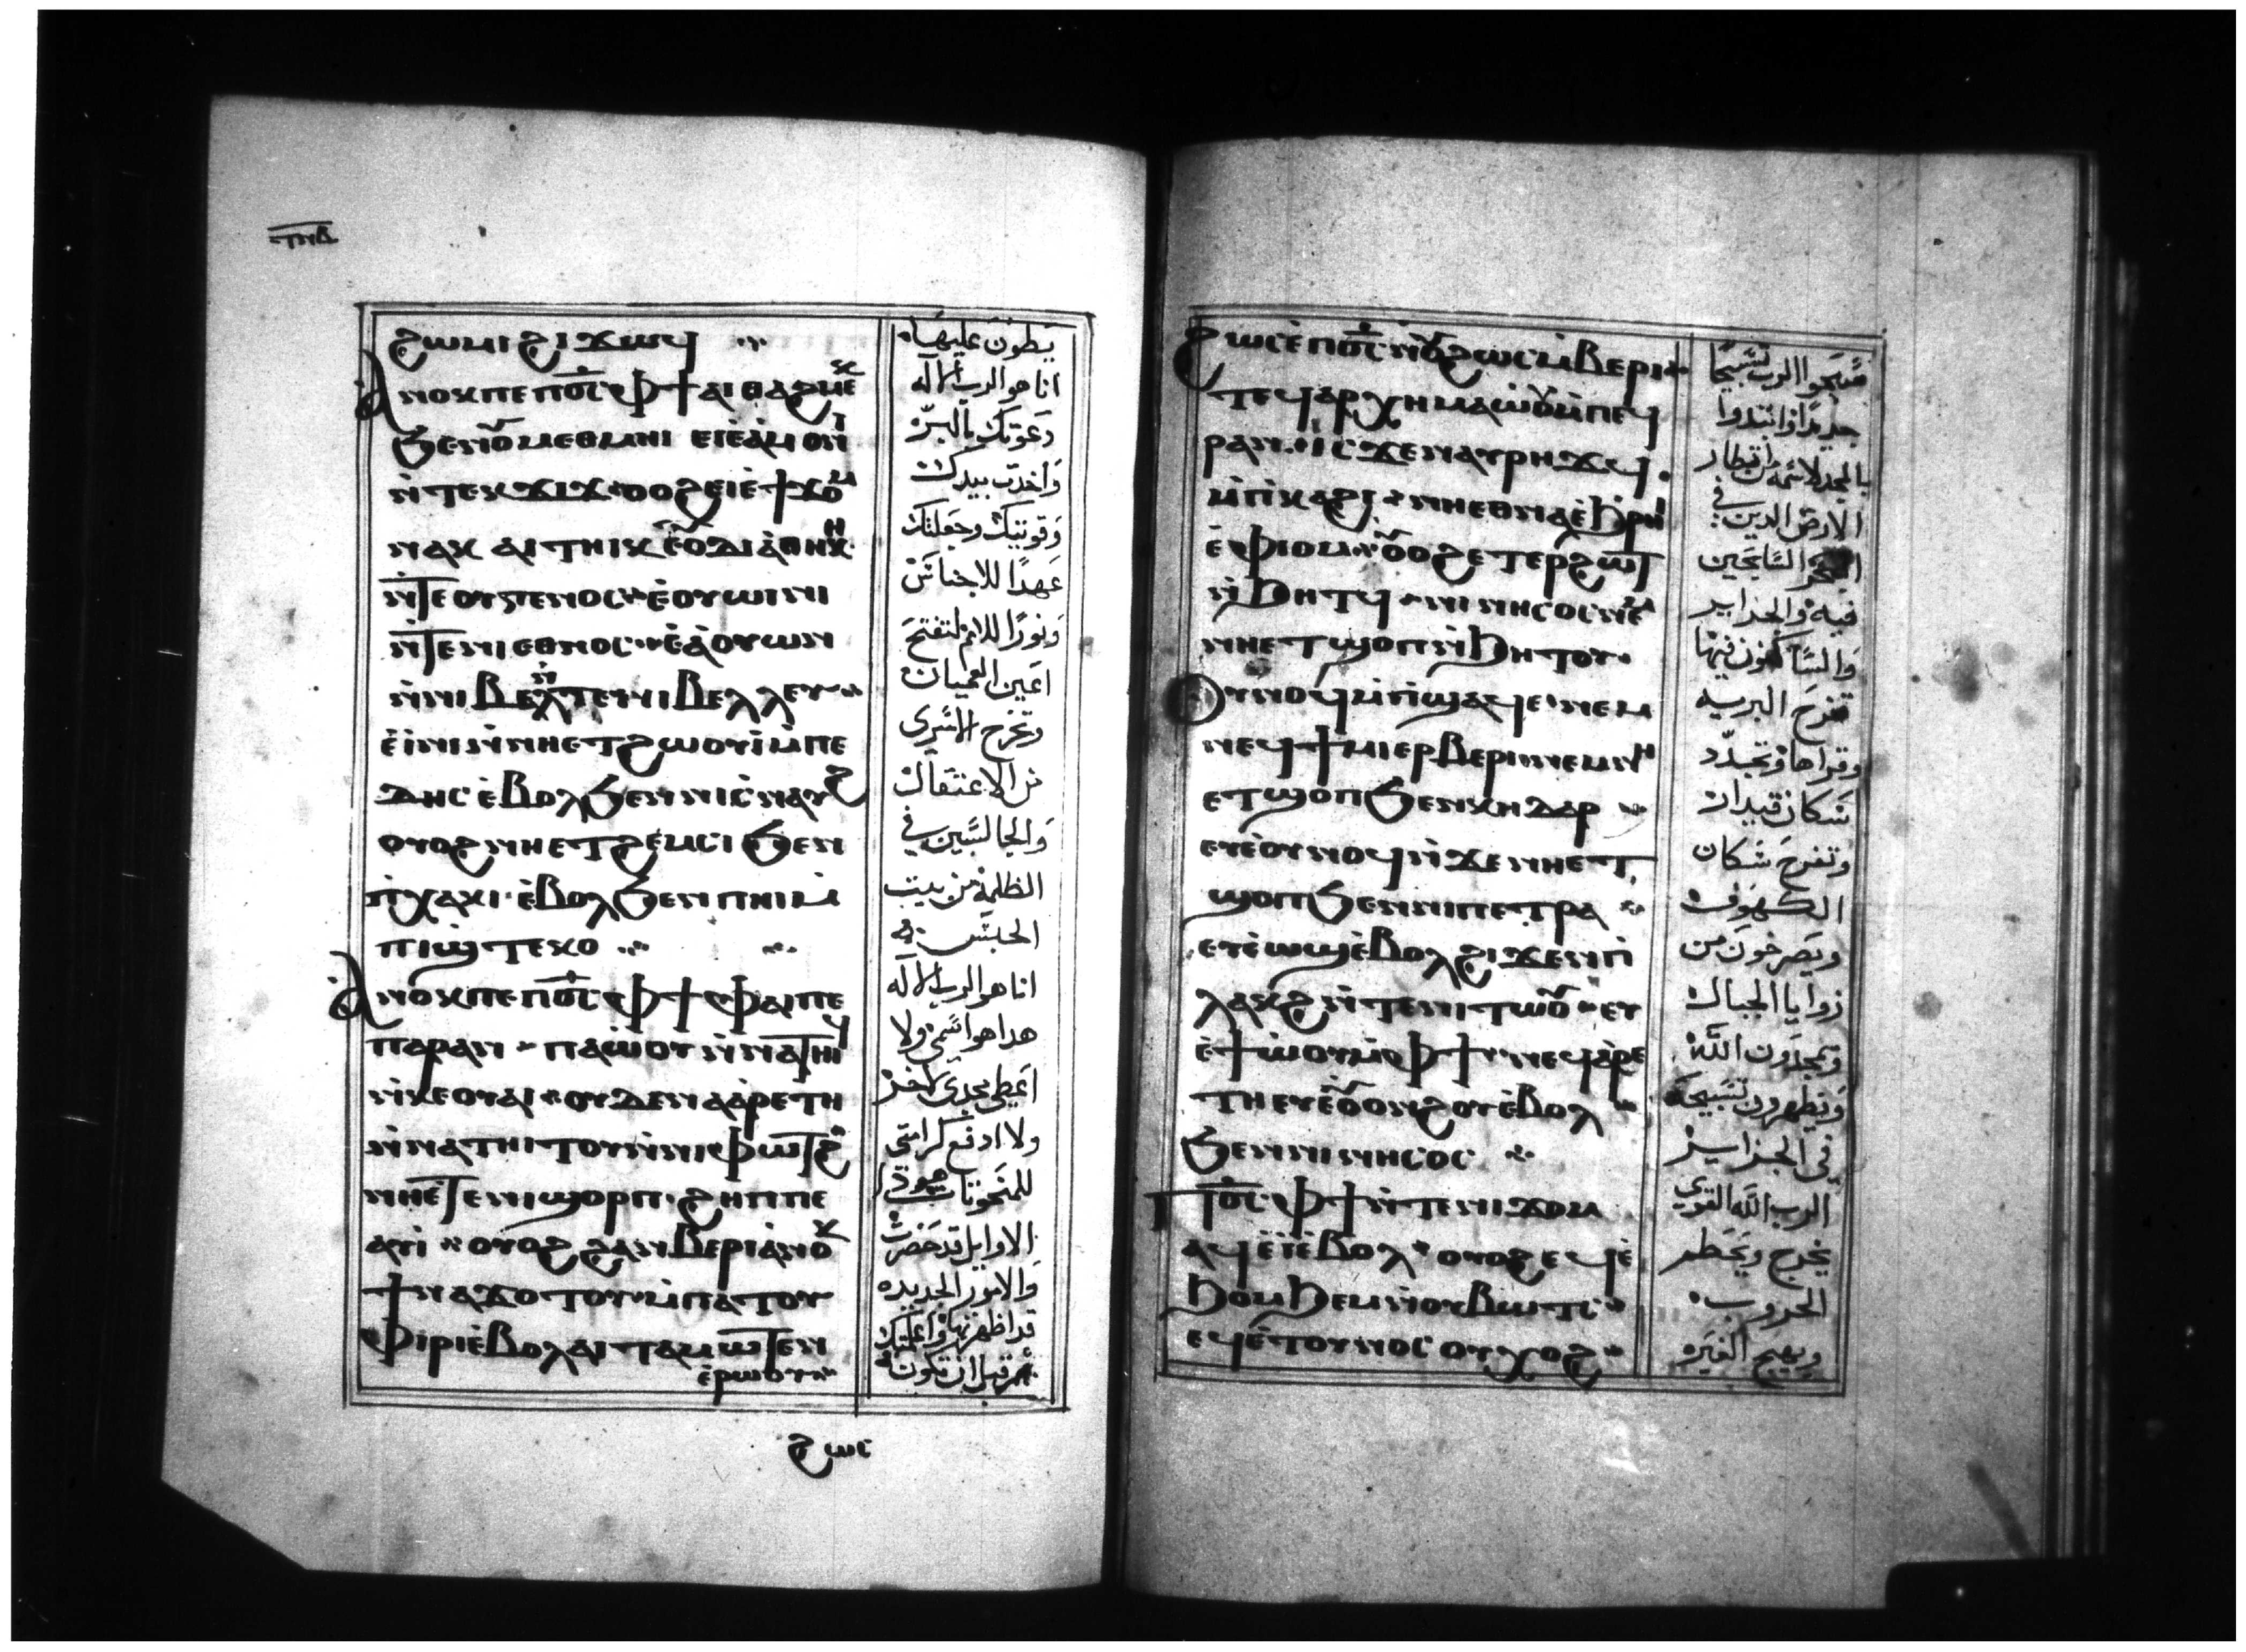 ⲧⲛⲃ
ϩⲱⲙⲓ ϩⲓϫⲱϥ
ⲁⲛⲟⲕ ⲡⲉ ⲡⲟ̅ⲥ̅ ⲫϯ ⲁⲓⲑⲁϩⲙⲉⲕ
ϧⲉⲛ ⲟⲩⲙⲉⲑⲙⲏⲓ ⲉⲓⲉ̀ⲁ̀ⲙⲟⲛⲓ
ⲛ̀ⲧⲉⲕϫⲓϫ ⲟⲩⲟϩ ⲉⲓⲉ̀ϯϫⲟⲙ
ⲛⲁⲕ ⲁⲓⲧⲏⲓⲕ ⲉ̀ⲟⲩⲇⲓⲁ̀ⲑⲏⲕⲏ
ⲛ̀ⲧⲉ ⲟⲩⲅⲉⲛⲟⲥ ⲉ̀ⲟⲩⲱⲓⲛⲓ
ⲛ̀ⲧⲉ ⲛⲓⲉⲑⲛⲟⲥ ⲉ̀ⲁ̀ⲟⲩⲱⲛ
ⲛ̀ⲛⲓⲃⲉⲗ ⲛ̀ⲧⲉ ⲛⲓⲃⲉⲗⲗⲉⲩ
ⲉ̀ⲓⲛⲓ ⲛ̀ⲛⲏ ⲉⲧϩⲱⲟⲩⲓ ⲙ̀ⲡⲉ
ⲇⲏⲥ ⲉ̀ⲃⲟⲗ ϧⲉⲛ ⲛⲓⲥ̀ⲛⲁⲩϩ
ⲟⲩⲟϩ ⲛⲏ ⲉⲧϩⲉⲙⲥⲓ ϧⲉⲛ
ⲡ̀ⲭⲁⲕⲓ ⲉ̀ⲃⲟⲗ ϧⲉⲛ ⲡⲏⲓ ⲙ̀
ⲡⲓϣ̀ⲧⲉⲕⲟ
ⲁⲛⲟⲕ ⲡⲉ ⲡⲟ̅ⲥ̅ ⲫϯ ⲫⲁⲓ ⲡⲉ
ⲡⲁⲣⲁⲛ ⲡⲁⲱ̀ⲟⲩ ⲛ̀ⲛⲁⲧⲏⲓϥ
ⲛ̀ⲕⲉⲟⲩⲁⲓ ⲟⲩⲇⲉ ⲛⲁⲁ̀ⲣⲉⲧⲏ
ⲛ̀ⲛⲁⲧⲏⲓⲧⲟⲩ ⲛ̀ⲛⲓⲫⲱⲧϩ
ⲛⲏ ⲉ̀ⲧⲉ ⲛⲓϣⲟⲣⲡ ϩⲏⲡⲡⲉ
ⲁⲩⲓ̀ ⲟⲩⲟϩ ϩⲁⲛⲃⲉⲣⲓ ⲁ̀ⲛⲟⲕ
ϯⲛⲁϫⲟⲧⲟⲩ ⲙ̀ⲡⲁⲧⲟⲩ
ⲫⲓⲣⲓ ⲉ̀ⲃⲟⲗ ⲁⲓⲧⲁⲙⲱⲧⲉⲛ
ⲉ̀ⲣⲱⲟⲩ
ϩⲱⲥ
يطون عليها
انا هو الرب الاله
دعوتك بالبرّ
واخدت بيدك
وقويتك وجعلتك
عهدًا للاجناس
ونورًا للامم لتفتح
اعين العميان
وتخرج الاسرى
من الاعتقال
والجالسين في
الظلمة من بيت
الحبس
انا هو الرب الاله
هدا هو اسمي ولا
اعطي مجدي لاخر
ولا ادفع كرامتي
للمنحوتات
الاوايل قد حضرت
والامور الجديده
قد اظهرتها واعلمتك
قبل ان تكون
ϩⲱⲥ ⲉ̀ⲡⲟ̅ⲥ̅ ⲛ̀ⲟⲩϩⲱⲥ ⲙ̀ⲃⲉⲣⲓ
ⲧⲉϥⲁⲣⲭⲏ ⲙⲁⲱ̀ⲟⲩ ⲙ̀ⲡⲉϥ
ⲣⲁⲛ ⲓⲥϫⲉⲛ ⲁⲩⲣⲏϫϥ
ⲙ̀ⲡⲓⲕⲁϩⲓ ⲛⲏ ⲉⲑⲛⲁ ⲉ̀ϧⲣⲏⲓ
ⲉ̀ⲫⲓⲟⲙ ⲟⲩⲟϩ ⲉⲧⲉⲣϩⲱⲧ
ⲛ̀ϧⲏⲧϥ ⲛⲓⲛⲏⲥⲟⲥ ⲛⲉⲙ
ⲛⲏ ⲉⲧϣⲟⲡ ⲛ̀ϧⲏⲧⲟⲩ
ⲟⲩⲛⲟϥ ⲙ̀ⲡⲓϣⲁϥⲉ ⲛⲉⲙ
ⲛⲉϥϯⲙⲓ ⲉⲣⲃⲉⲣⲓ ⲛⲉⲙ ⲛⲏ
ⲉⲧϣⲟⲡ ϧⲉⲛ ⲕⲏⲇⲁⲣ
ⲉⲩⲉ̀ⲟⲩⲛⲟϥ ⲛ̀ϫⲉ ⲛⲏ ⲉⲧ
ϣⲟⲡ ϧⲉⲛ ⲛⲓⲡⲉⲧⲣⲁ
ⲉⲩⲉ̀ⲱϣ ⲉ̀ⲃⲟⲗ ϩⲓϫⲉⲛ ⲡⲓ
ⲗⲁⲕϩ ⲛ̀ⲧⲉ ⲛⲓⲧⲱⲟⲩ ⲉⲩ
ⲉ̀ϯⲱ̀ⲟⲩ ⲙ̀ⲫϯ ⲛⲉϥⲁ̀ⲣⲉ
ⲧⲏ ⲉⲩⲉ̀ⲟⲩⲟⲛϩⲟⲩ ⲉ̀ⲃⲟⲗ
ϧⲉⲛ ⲛⲓⲛⲏⲥⲟⲥ
ⲡⲟ̅ⲥ̅ ⲫϯ ⲛ̀ⲧⲉ ⲛⲓϫⲟⲙ
ⲁϥⲉ̀ⲓ̀ ⲉ̀ⲃⲟⲗ ⲟⲩⲟϩ ⲉϥⲉ̀
ϧⲟⲙϧⲉⲙ ⲛ̀ⲟⲩⲃⲱⲧⲥ
ⲉϥⲉ̀ⲧⲟⲩⲛⲟⲥ ⲟⲩⲭⲟϩ
سبحوا الرب تسبيحًا
جديدًا وابتدوا
بالمجد لاسمه من اقطار
الارض الدين في
البحر السايحين
فيه والجزاير
والساكنون فيها
تفرح البريه
وقراها وتجدّد
سكان قيدار
وتفرح سكان
الكهوف
ويصرخون من
زوايا الجبال
ويمجدون الله
ويظهرون تسبيحه
في الجزاير
الرب الله القوي
يخرج ويحطم
الحروب
ويهيج الغيره